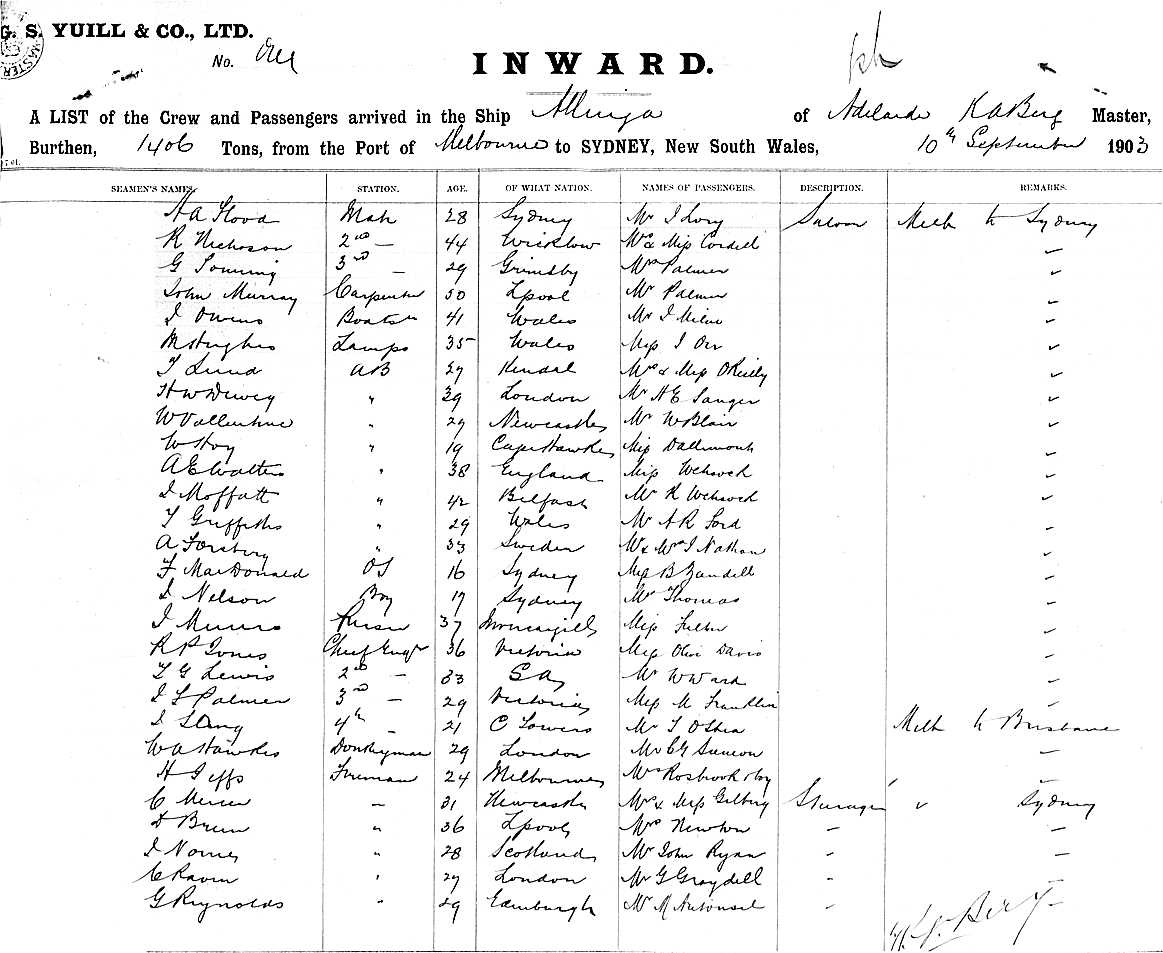 G. S. YUILL & CO., LTD.
No. One
INWARD.
MASTER
A LIST of the Crew and Passengers arrived in the Ship Allinga of Adelaide K A Berg Master,
Burthen, 1406 Tons, from the Port of Melbourne to SYDNEY, New South Wales, 10th September 1903
SEAMEN'S NAMES. STATION. AGE. OF WHAT NATION. NAMES OF PASSENGERS. DESCRIPTION. REMARKS.
H A Flood Mate 28 Sydney Mr J Lory Saloon Melb to Sydney
R 2nd — 44 Wicklow Mrs & Miss Cordell "
G 3rd — 29 Grimsby Mrs Palmer "
John Murray Carpenter 50 Lpool Mr Palmer "
J Owens Boatsn 41 Wales Mr J Milne "
M Hughes Lamps 35 Wales Miss J Orr "
T Lund AB 27 Kendal Mrs & Miss O'Reilly "
H W Dewey " 39 London Mr H E Sanger "
W Vallentine " 29 Newcastle Mr W Blair "
W Hoy " 19 Cape Hawke Miss "
A E Walters " 38 England Miss "
J Moffatt " 42 Belfast Mr R "
T Griffiths " 29 Wales Mr A R Ford "
A Forsberg " 33 Sweden Mr & Mrs J Nathan "
F MacDonald OS 16 Sydney Miss B Zandell "
J Nelson Boy 17 Sydney Mr Thomas "
J Munro Purser 37 Invercargill Miss "
R P Jones Chief Engr 36 Victoria Miss Olive Davis "
T G Lewis 2nd — 33 S A Mr W Ward "
J L Palmer 3rd — 29 Victoria Miss M Franklin "
J 4th — 21 C Towers Mr T O'Shea Melb to Brisbane
W A Hawkes Donkeyman 29 London Mr C G "
H Jeffs Fireman 24 Melbourne Mrs Rosbrook & boy "
C Mercer — 31 Newcastle Mrs & Miss Gilbery Steerage " Sydney
D " 36 Lpool Mrs Newton — —
J " 28 Scotland Mr John Ryan " —
C Raven " 27 London Mr G Graydell "
G Reynolds " 29 Edinburgh Mr M "
K. A. Berg